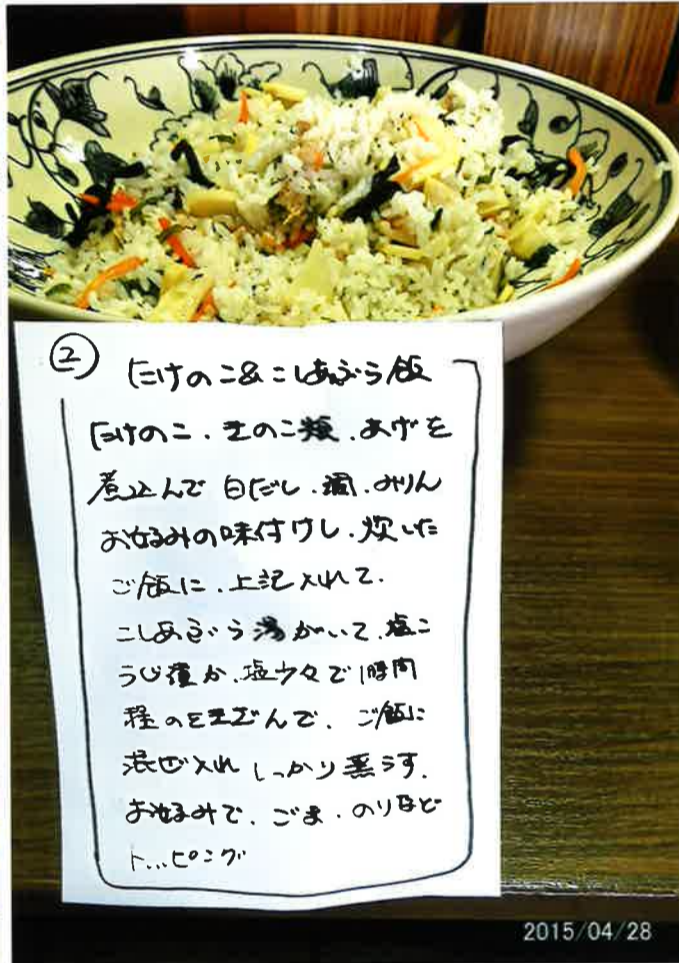 ② たけのこ&こしあぶら飯
たけのこ、きのこ類、あげを
煮込んで 白だし、酒、みりん
お好みの味付けし、炊いた
ご飯に、上記入れて、
こしあぶら湯がいて、塩こ
うじ漬か、塩少々で1時間
程
んで、ご飯に
混ぜ入れ しっかり蒸らす。
お好みで、ごま、のりなど
トッピング
2015/04/28